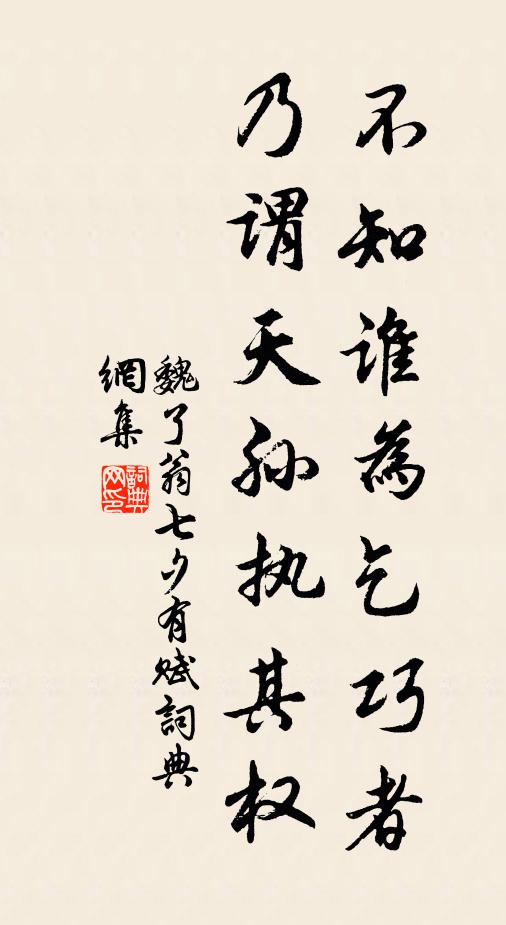 不知谁為乞巧者
乃谓天孙执其权
魏了翁七夕有赋詞典
網集
詞典
网印